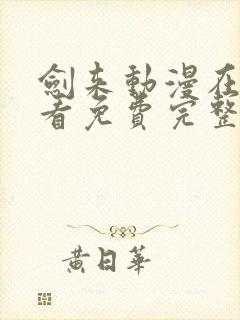 劍来動漫在
看免費完整
黃日華